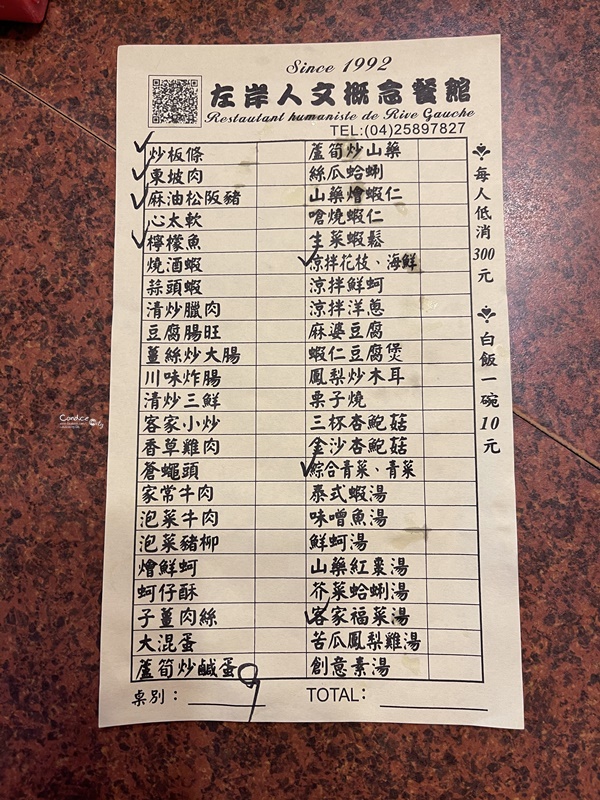 Since 1992
左岸人文概念餐館
Restautant humaniste de Rive Gauche
TEL:(04)25897827
炒板條
東坡肉
麻油松阪豬
心太軟
檸檬魚
燒酒蝦
蒜頭蝦
清炒臘肉
豆腐腸旺
薑絲炒大腸
川味炸腸
清炒三鮮
客家小炒
香草雞肉
蒼蠅頭
家常牛肉
泡菜牛肉
泡菜豬柳
燴鮮蚵
蚵仔酥
子薑肉絲
大混蛋
蘆筍炒鹹蛋
蘆筍炒山藥
絲瓜蛤蜊
山藥燴蝦仁
嗆燒蝦仁
生菜蝦鬆
涼拌花枝、海鮮
涼拌鮮蚵
涼拌洋蔥
麻婆豆腐
蝦仁豆腐煲
鳳梨炒木耳
栗子燒
三杯杏鮑菇
金沙杏鮑菇
綜合青菜、青菜
泰式蝦湯
味噌魚湯
鮮蚵湯
山藥紅棗湯
芥菜蛤蜊湯
客家福菜湯
苦瓜鳳梨雞湯
創意素湯
每人低消300元
白飯一碗10元
桌別：9
TOTAL：
Candice